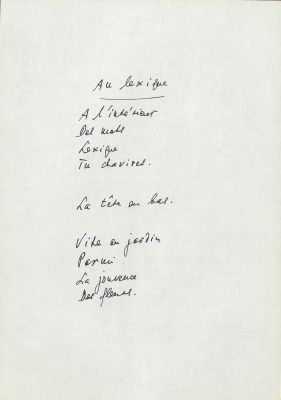 Au lexique
A l'intérieur
Des mots
Lexique
Tu chavires.
La tête en bas.
Vite au jardin
Parmi
La jouvence
Des fleurs.